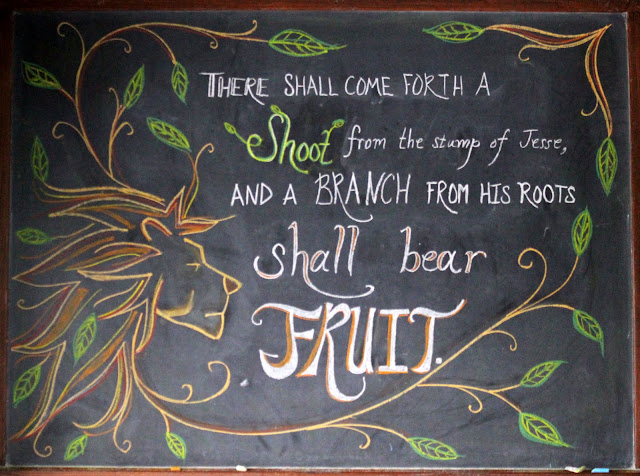 THERE SHALL COME FORTH A
Shoot from the stump of Jesse,
AND A BRANCH FROM HIS ROOTS
shall bear
FRUIT.